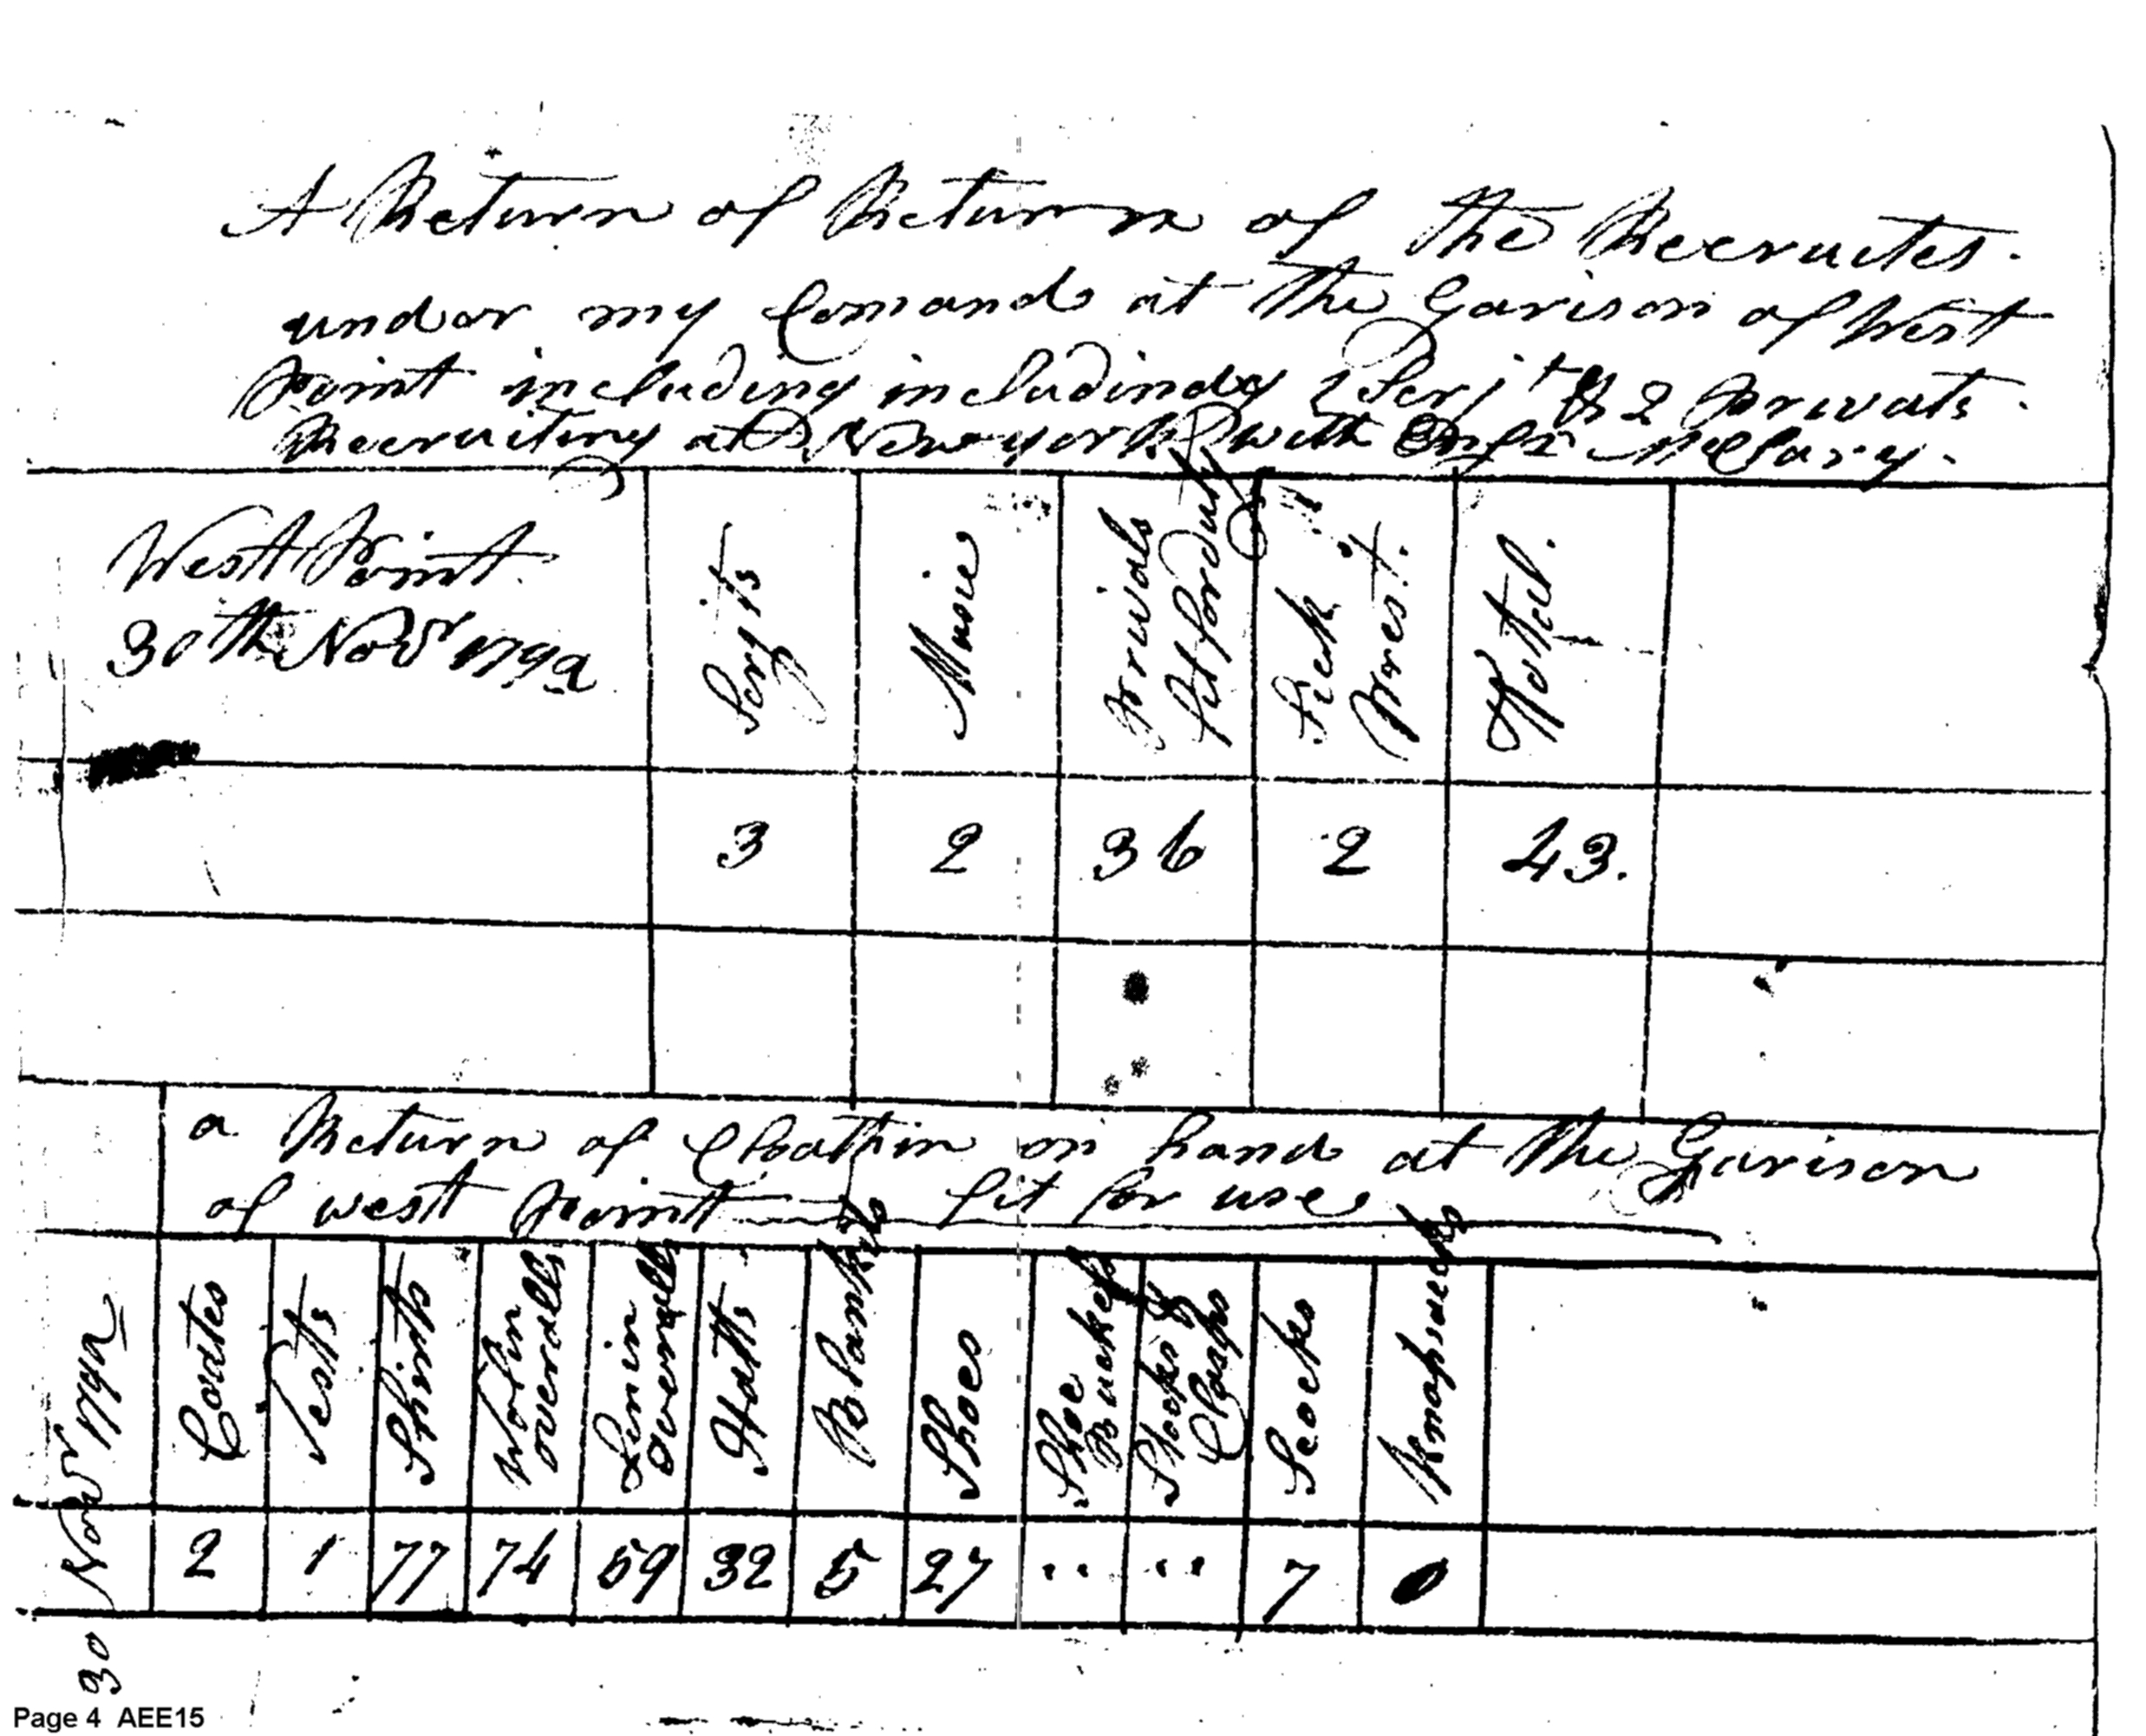 A Return of Return of the Recruites.
undor my Comand at the Garison of West
Point including includindg 1 Serjt & 2 privats.
Recruiting at Newyork with Ensn McClary.
West Point
30th Novr 1792
Serjts
Music
Privats
fit for duty
Sick
Prest.
Tottel.
3 2 36 2 43.
a Return of Cloathin on hand at the Garison
of west point fit for use
30 Novr 1792
Coates
Vests
Shirts
Wolin
overalls
Linin
overalls
Hatts
Blankts
Shoes
Shoe
Buckels
Stocks &
Clasps
Socks
Knapsacks
2 1 77 74 59 32 5 27 .. .. 7 0
Page 4 AEE15